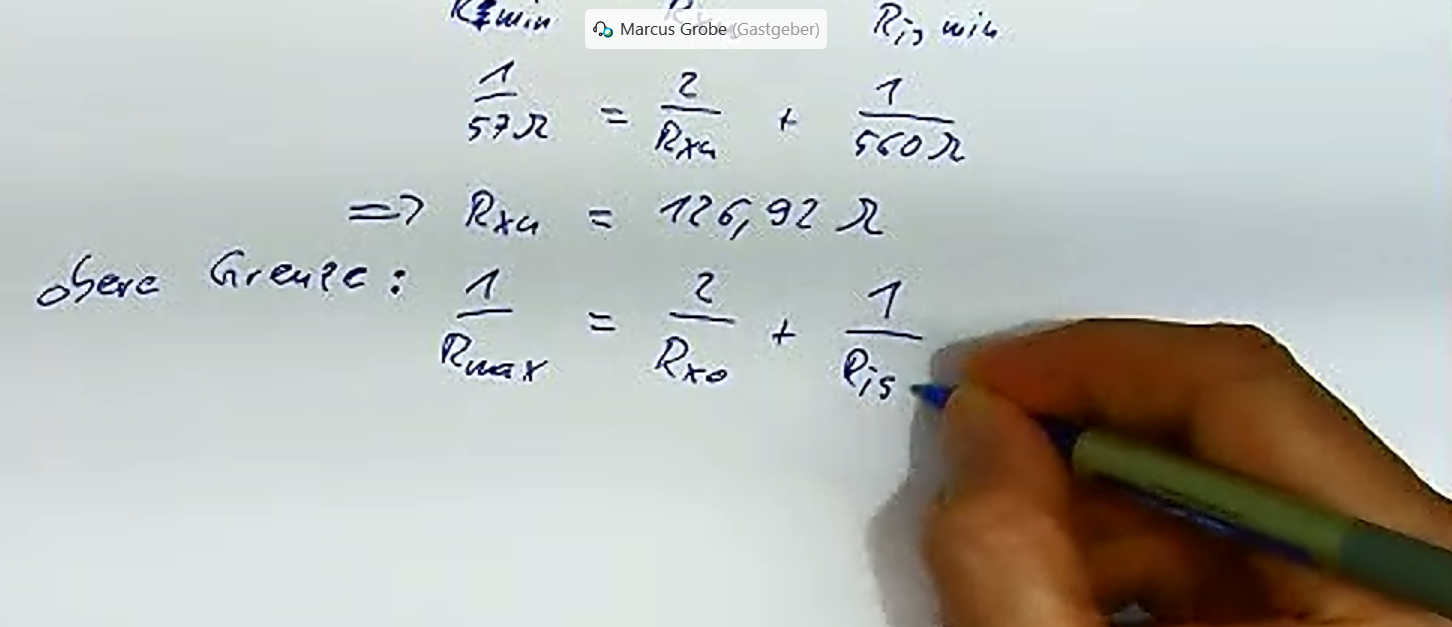 Marcus Grobe (Gastgeber)
min Ris min
1/57Ω = 2/Rxu + 1/560Ω
=> Rxu = 126,92 Ω
obere Grenze: 1/Rmax = 2/Rxo + 1/Ris